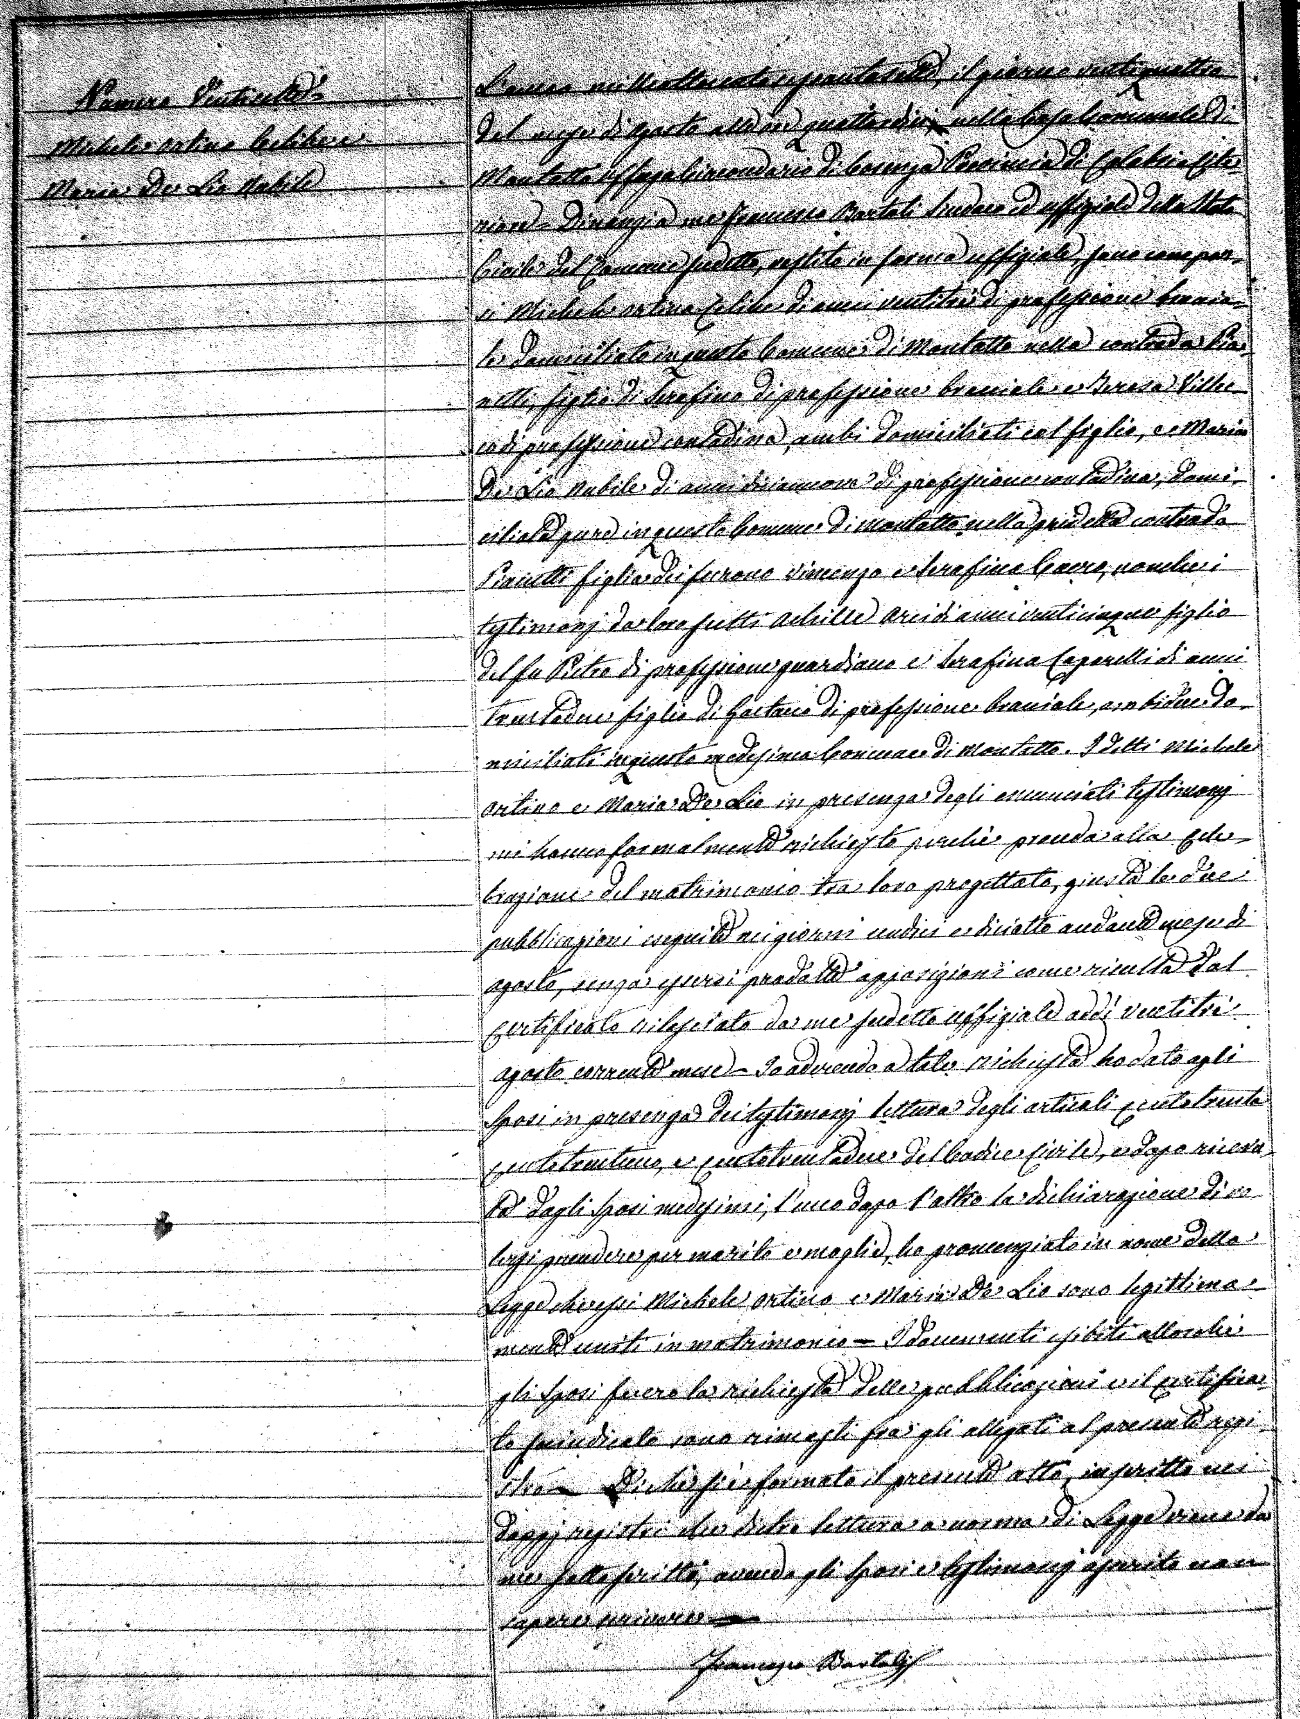 Numero Ventisette
Michele Ortino Celibe e
Maria De Lio Nubile
L'anno milleottocentosessantasette, il giorno ventiquattro
del mese di Agosto alle ore quattordici nella Casa Comunale di
Montalto Uffugo Circondario di Cosenza Provincia di Calabria Cite-
riore - Dinanzi a me Francesco Bartoli Sindaco ed uffiziale dello Stato
Civile del Comune sudetto, vestito in forma uffiziale, sono compar-
si Michele Ortino Celibe di anni ventitre di professione braccia-
le domiciliato in questo Comune di Montalto nella contrada Pia-
netti, figlio di Serafino di professione bracciale e Teresa
di professione contadina, ambi domiciliati col figlio, e Maria
De Lio Nubile di anni diciannove di professione contadina, domi-
ciliata pure in questo Comune di Montalto nella predetta contrada
Pianetti figlia dei furono Vincenzo e Serafina, nonche i
testimonj da loro scelti Achille Arci di anni venticinque figlio
del fu Pietro di professione guardiano e Serafino Caparelli di anni
trentadue figlio di Gaetano di professione bracciale, ambidue do-
miciliati in questo medesimo Comune di Montalto. I detti Michele
Ortino e Maria De Lio in presenza degli enunciati testimonj
mi hanno formalmente richiesto perchè proceda alla cele-
brazione del matrimonio tra loro progettato, giusta le due
pubblicazioni eseguite nei giorni undici e diciotto andante mese di
agosto, senza essersi prodotte opposizioni come risulta dal
certificato rilasciato da me sudetto uffiziale addì ventitre
agosto corrente mese - Io aderendo a tale richiesta ho dato agli
sposi in presenza dei testimonj lettura degli articoli centotrenta
centotrentuno, e centotrentadue del Codice Civile, e dopo ricevu-
ta dagli sposi medesimi, l'uno dopo l'altro la dichiarazione di vo-
lersi prendere per marito e moglie, ho pronunziato in nome della
Legge che essi Michele Ortino e Maria De Lio sono legittima-
mente uniti in matrimonio - I documenti esibiti allorchè
gli sposi fecero la richiesta delle pubblicazioni e il certifica-
to suindicato sono rimasti fra gli allegati al presente regi-
stro - Di che si è formato il presente atto, inscritto nei
doppj registri che dietro lettura a norma di Legge viene da
me sottoscritto, avendo gli sposi e testimonj asserito non
sapere scrivere
Francesco Bartoli